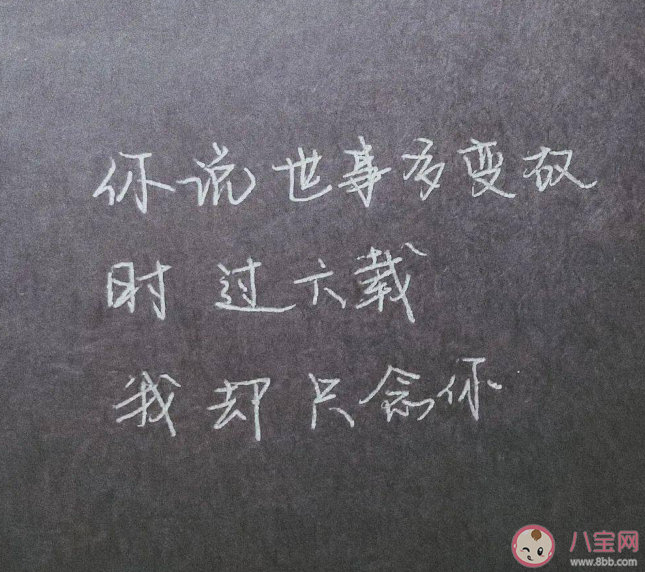 你说世事多变故
时过六载
我却只念你
八宝网
www.8bb.com